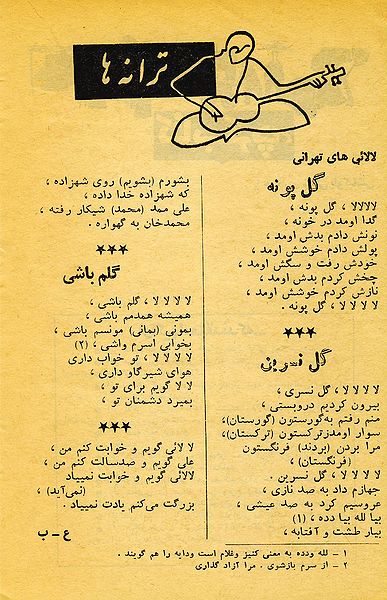 ترانه ها
لالائی های تهرانی
گل پونه
لالالالا ، گل پونه ،
گدا اومد در خونه ،
نونش دادم بدش اومد ،
پولش دادم خوشش اومد ،
خودش رفت و سگش اومد ،
چخش کردم بدش اومد ،
نازش کردم خوشش اومد ،
لا لا لا لا ، گل پونه .
***
گل نسرین
لا لا لا لا ، گل نسری ،
بیرون کردیم دروبستی ،
منم رفتم به‌گورستون (گورستان)،
سوار اومدزترکستون (ترکستان)،
مرا بردن (بردند) فرنگستون
(فرنگستان) ،
لا لا لا لا ، گل نسرین .
جهازم داد به صد نازی ،
عروسیم کرد به صد عیشی ،
بیا لله بیا دده ، (۱)
بیار طشت و آفتابه ،
بشورم (بشویم) روی شهزاده ،
که شهزاده خدا داده ،
علی ممد (محمد) شیکار رفته ،
محمدخان به گهواره .
***
گلم باشی
لا لا لا لا ، گلم باشی ،
همیشه همدمم باشی ،
بمونی (بمانی) مونسم باشی ،
بخوابی اسرم واشی ، (۲)
لا لا لا لا ، تو خواب داری
هوای شیرگاو داری ،
لا لا گویم برای تو ،
بمیرد دشمنان تو .
***
لا لائی گویم و خوابت کنم من ،
علی گویم و صدسالت کنم من ،
لالائی گویم و خوابت نمییاد
(نمی‌آید) ،
بزرگت می‌کنم یادت نمییاد .
ع – ب
۱ – لله ودده به معنی کنیز وغلام است ودایه را هم گویند .
۲ – از سرم بازشوی . مرا آزاد گذاری